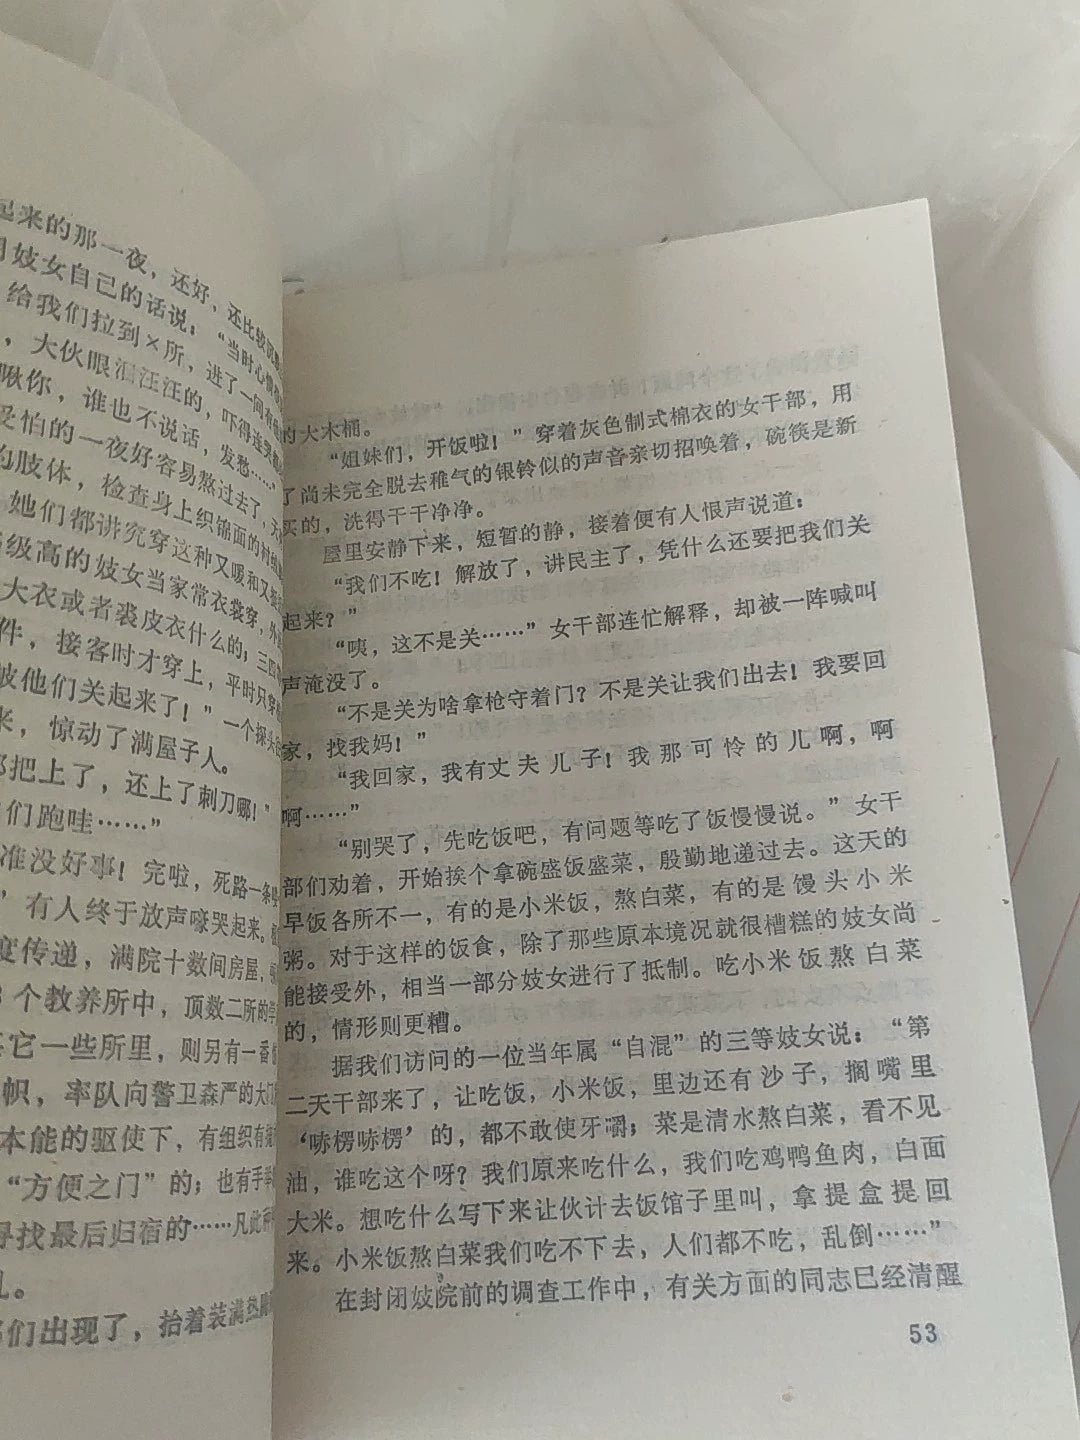 起来的那一夜，还好、还比较沉
妓女自己的话说：“当时心
给我们拉到×所，进了一间有
，大伙眼泪汪汪的，吓得连哭都
瞅你，谁也不说话，发愁……”
受怕的一夜好容易熬过去了，天
的肢体，检查身上织锦面的衬
她们都讲究穿这种又暖和又
等级高的妓女当家常衣裳穿，外
大衣或者裘皮衣什么的；三四
件，接客时才穿上，平时只穿
被他们关起来了！”一个探头
来，惊动了满屋子人。
都把上了，还上了刺刀哪！”
们跑哇……”
准没好事！完啦，死路一条
”有人终于放声嚎哭起来。
度传递，满院十数间房屋，
8个教养所中，顶数二所的
其它一些所里，则另有一番
帜，率队向警卫森严的大门
本能的驱使下，有组织有
“方便之门”的；也有手
寻找最后归宿的……凡此种
乱。
部们出现了，抬着装满热
的大木桶。
“姐妹们，开饭啦！”穿着灰色制式棉衣的女干部，用
了尚未完全脱去稚气的银铃似的声音亲切招唤着，碗筷是新
买的，洗得干干净净。
屋里安静下来，短暂的静，接着便有人恨声说道：
“我们不吃！解放了，讲民主了，凭什么还要把我们关
起来？”
“咦，这不是关……”女干部连忙解释，却被一阵喊叫
声淹没了。
“不是关为啥拿枪守着门？不是关让我们出去！我要回
家，找我妈！”
“我回家，我有丈夫儿子！我那可怜的儿啊，啊
啊……”
“别哭了，先吃饭吧，有问题等吃了饭慢慢说。”女干
部们劝着，开始挨个拿碗盛饭盛菜，殷勤地递过去。这天的
早饭各所不一，有的是小米饭，熬白菜，有的是馒头小米
粥。对于这样的饭食，除了那些原本境况就很槽糕的妓女尚
能接受外，相当一部分妓女进行了抵制。吃小米饭熬白菜
的，情形则更糟。
据我们访问的一位当年属“自混”的三等妓女说：“第
二天干部来了，让吃饭，小米饭，里边还有沙子，搁嘴里
‘哧楞哧楞’的，都不敢使牙嚼；菜是清水熬白菜，看不见
油，谁吃这个呀？我们原来吃什么，我们吃鸡鸭鱼肉，白面
大米。想吃什么写下来让伙计去饭馆子里叫，拿提盒提回
来。小米饭熬白菜我们吃不下去，人们都不吃，乱倒……”
在封闭妓院前的调查工作中，有关方面的同志已经清醒
53